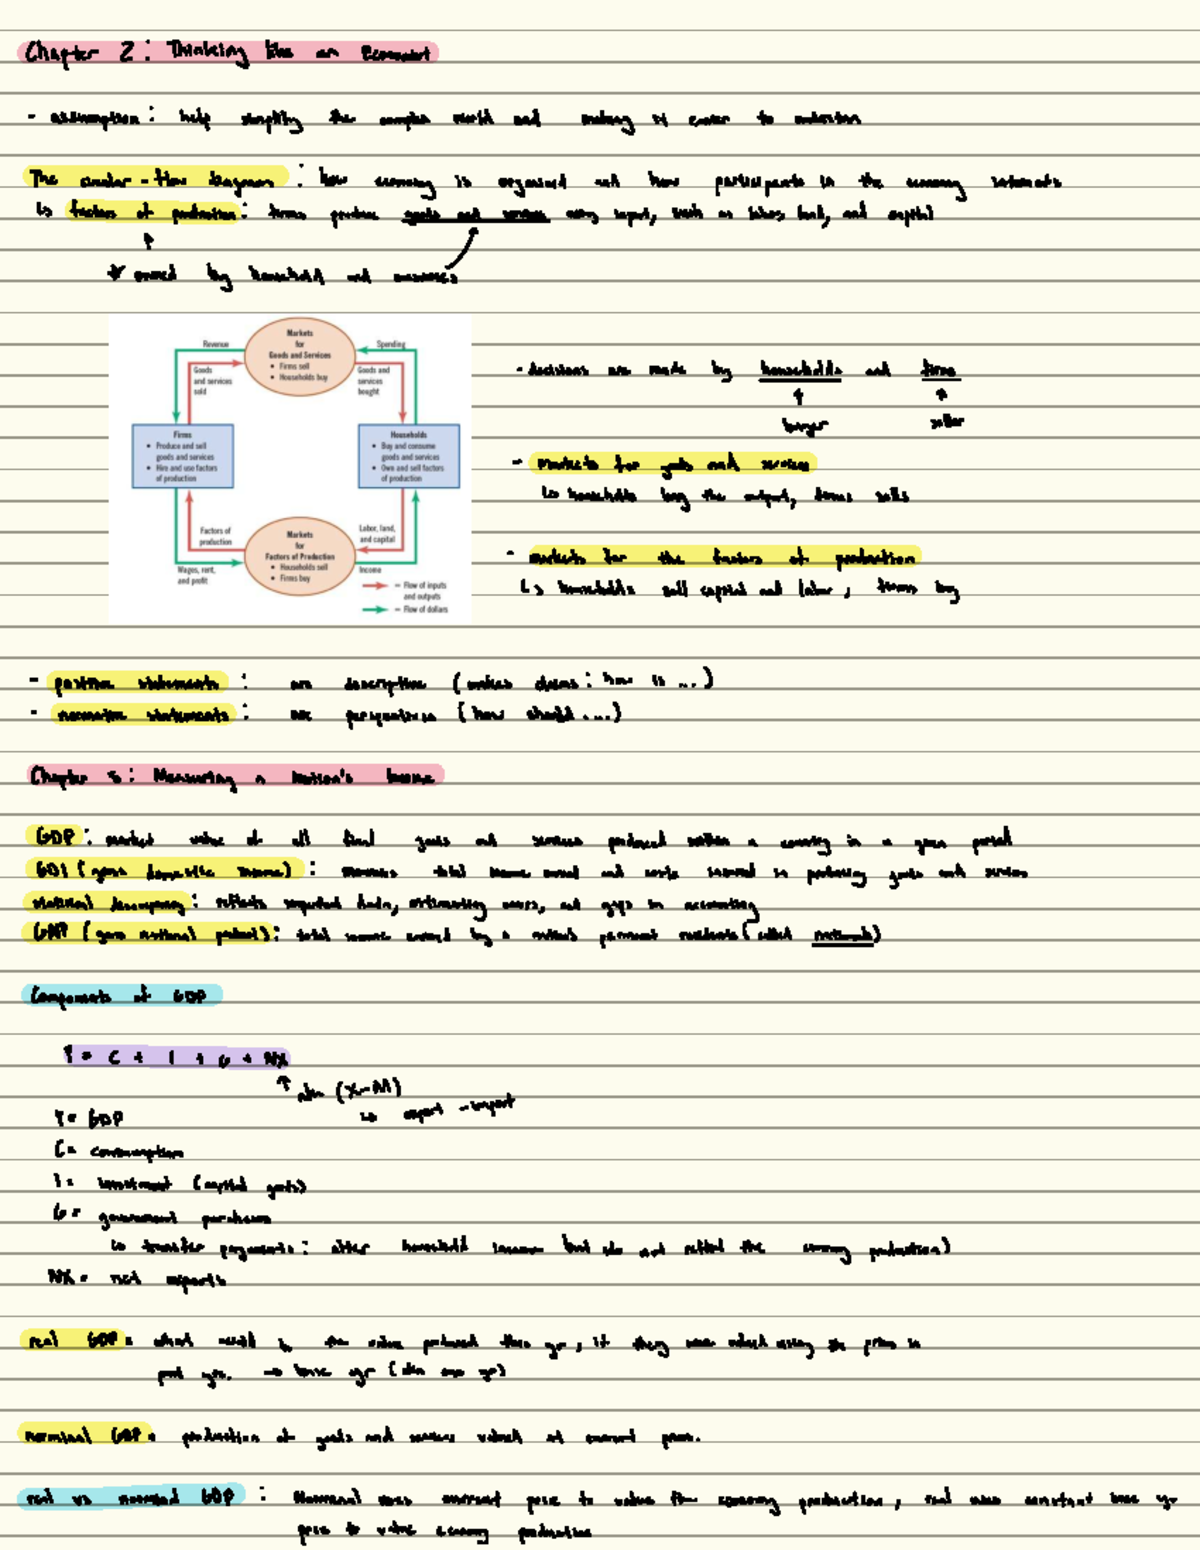 Chapter 2: Thinking like an Economist
- assumption: help simplify the complex world and making it easier to understand
The circular-flow diagram: how economy is organized and how participants in the economy interacts
↳ factors of production: firms produce goods and services using input, such as labor, land, and capital
* owned by household and businesses
Markets
for
Goods and Services
• Firms sell
• Households buy
Revenue
Spending
Goods
and services
sold
Goods and
services
bought
Firms
• Produce and sell
goods and services
• Hire and use factors
of production
Households
• Buy and consume
goods and services
• Own and sell factors
of production
Factors of
production
Labor, land,
and capital
Markets
for
Factors of Production
• Households sell
• Firms buy
Wages, rent,
and profit
Income
= Flow of inputs
and outputs
= Flow of dollars
- decisions are made by households and firms
buyer seller
- markets for goods and services
↳ households buy the output, firms sells
- markets for the factors of production
↳ households sell capital and labor, firms buy
- positive statements: are descriptive (makes claims: how is ...)
- normative statements: are (how should ...)
Chapter 5: Measuring a Nation's Income
GDP: market value of all final goods and services produced within a country in a given period
GDI (gross domestic income): measures total income earned and costs incurred in producing goods and services
statistical discrepancy: reflects data, and gaps in accounting
GNP (gross national product): total income earned by a nation's permanent residents (called nationals)
Components of GDP
Y = C + I + G + NX
(X-M)
↳ export - import
Y = GDP
C = consumption
I = investment (capital goods)
G = government purchases
↳ transfer payments: alter household income but do not reflect the economy production)
NX = net exports
real GDP = what would be the value produced this yr, if they were valued using the prices in
past yrs. → base yr
nominal GDP = production of goods and services valued at current prices.
real vs nominal GDP: Nominal uses current price to value the economy production, real uses constant base yr
price to value economy production